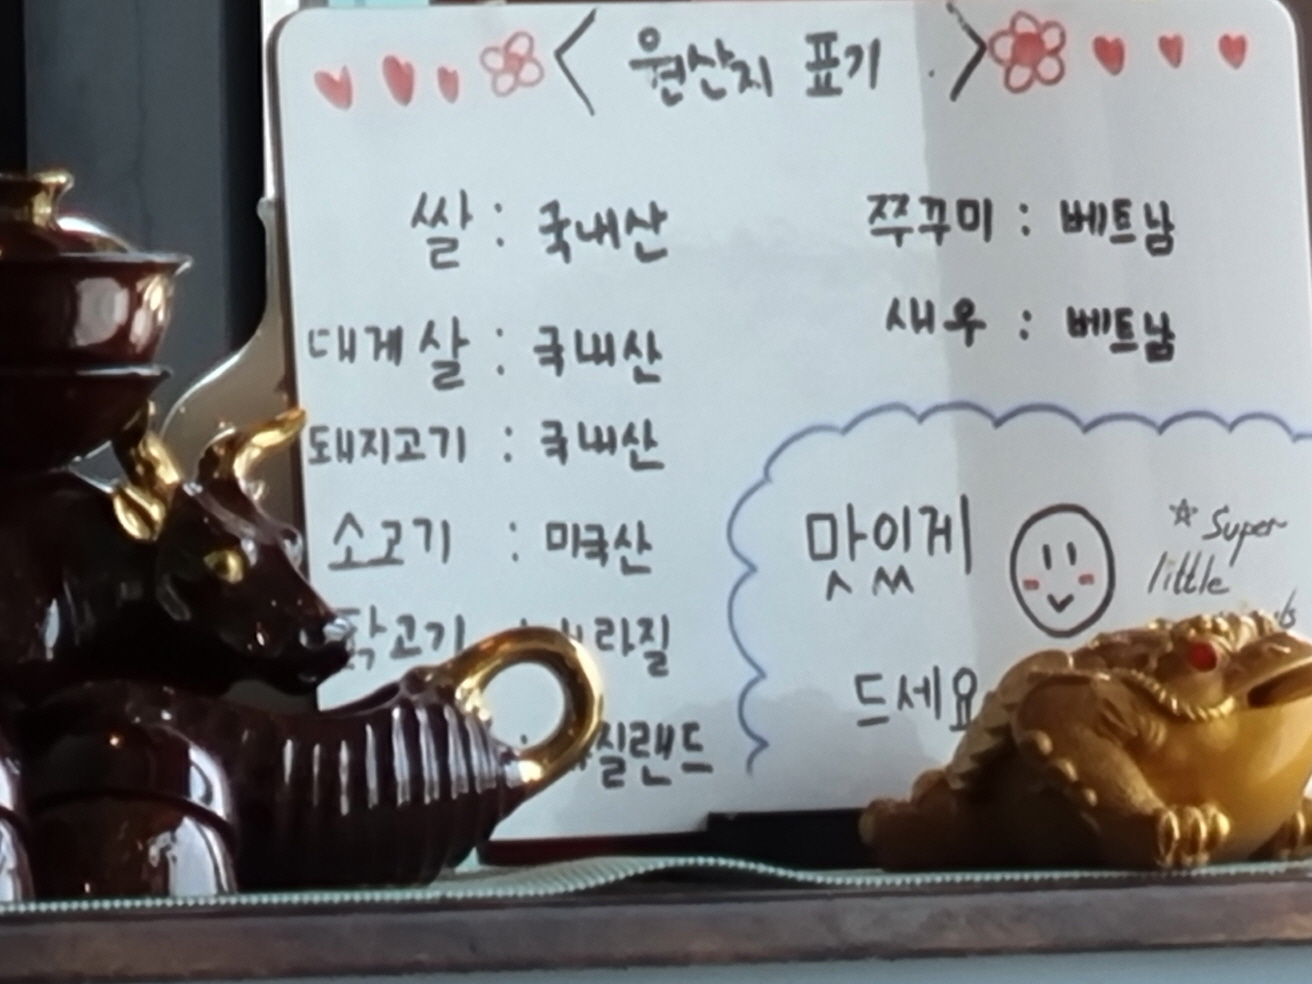 < 원산지 표기 >
쌀 : 국내산
대게살 : 국내산
돼지고기 : 국내산
소고기 : 미국산
닭고기 : 라질
: 실랜드
쭈꾸미 : 베트남
새우 : 베트남
맛있게
드세요
☆ Super
little